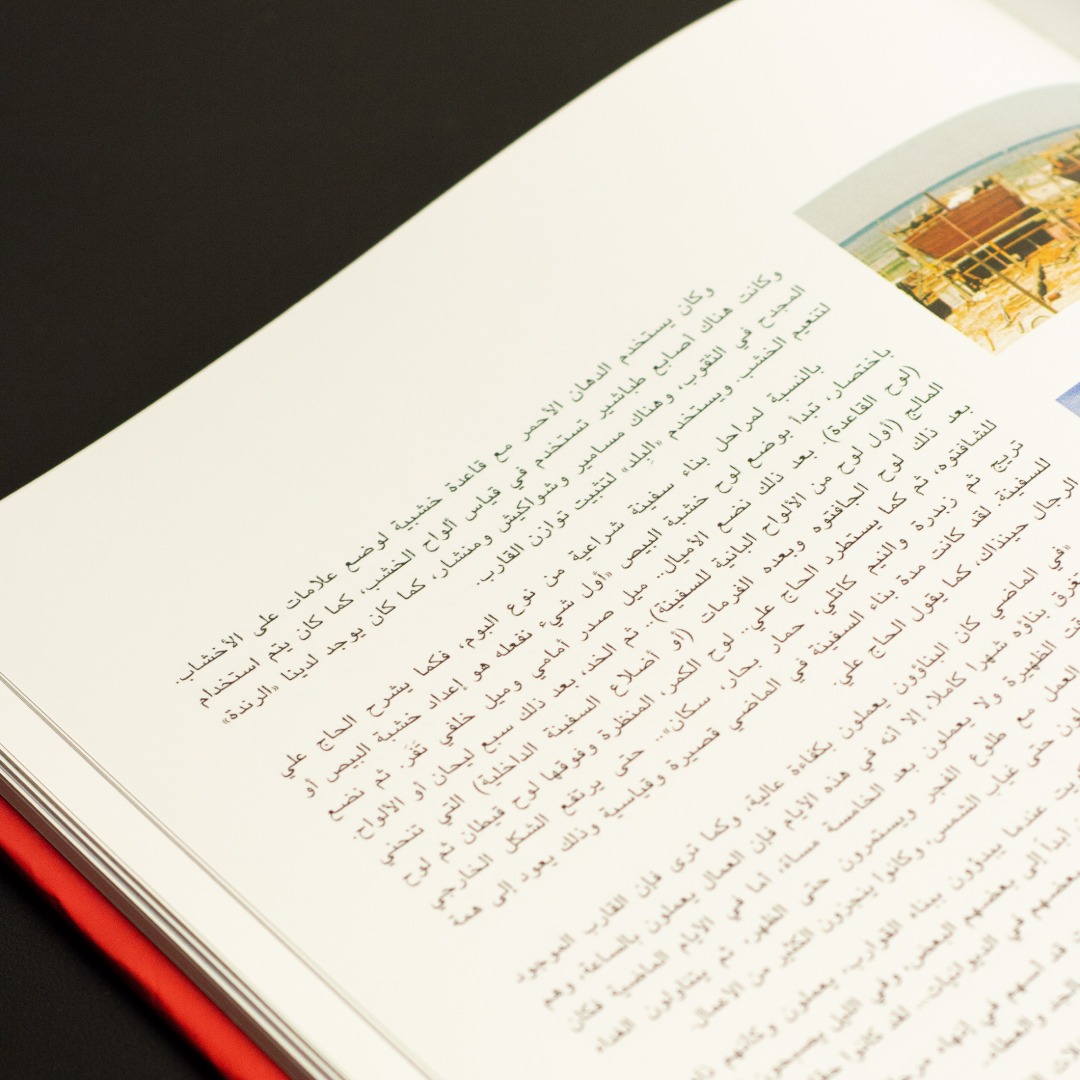 وكان يستخدم الدهان الأحمر مع قاعدة خشبية لوضع علامات على الأخشاب.
وكانت هناك أصابع طباشير تستخدم في قياس ألواح الخشب، كما كان يتم استخدام
المجدح في الثقوب، وهناك مسامير وشواكيش ومنشار، كما كان يوجد لدينا «الرندة»
لتنعيم الخشب. ويستخدم «البِلد» لتثبيت توازن القارب.
بالنسبة لمراحل بناء سفينة شراعية من نوع البوم، فكما يشرح الحاج علي
باختصار، تبدأ بوضع لوح خشبة البيص «أول شيء نفعله هو إعداد خشبة البيص أو
(لوح القاعدة). بعد ذلك نضع الأميال.. ميل صدر أمامي وميل خلفي تَفَر. ثم نضع
المالج (أول لوح من الألواح البانية للسفينة).. ثم الخد، بعد ذلك سبع ليحان أو الألواح
بعد ذلك لوح الجافتوه وبعده الفرمات (أو أضلاع السفينة الداخلية) التي تنحني
للشافتوه، ثم كما يستطرد الحاج علي.. لوح الكمر، المنظرة وفوقها لوح قيطان ثم لوح
تريج ثم زبدرة والنيم كاتلي، حمار بحار، سكان».. حتى يرتفع الشكل الخارجي
للسفينة. لقد كانت مدة بناء السفينة في الماضي قصيرة وقياسية وذلك يعود إلى همة
الرجال حينذاك، كما يقول الحاج علي:
«في الماضي كان البناؤون يعملون بكفاءة عالية، وكما ترى فإن القارب الموجود
بناؤه شهرا كاملا، إلا أنه في هذه الأيام فإن العمال يعملون بالساعة، وهم
الظهيرة ولا يعملون بعد الخامسة مساء، أما في الأيام الماضية فكان
العمل مع طلوع الفجر ويستمرون حتى الظهر، ثم يتناولون الغداء
حتى غياب الشمس، وكانوا ينجزون الكثير من الأعمال
عندما يبدؤون ببناء القوارب، يعملون وكأنهم
أبدا إلى بعضهم البعض، وفي الليل
بعضهم في الديوانيات.. لقد كانوا
قد أسهم في إنهاء
الجد والعطاء.